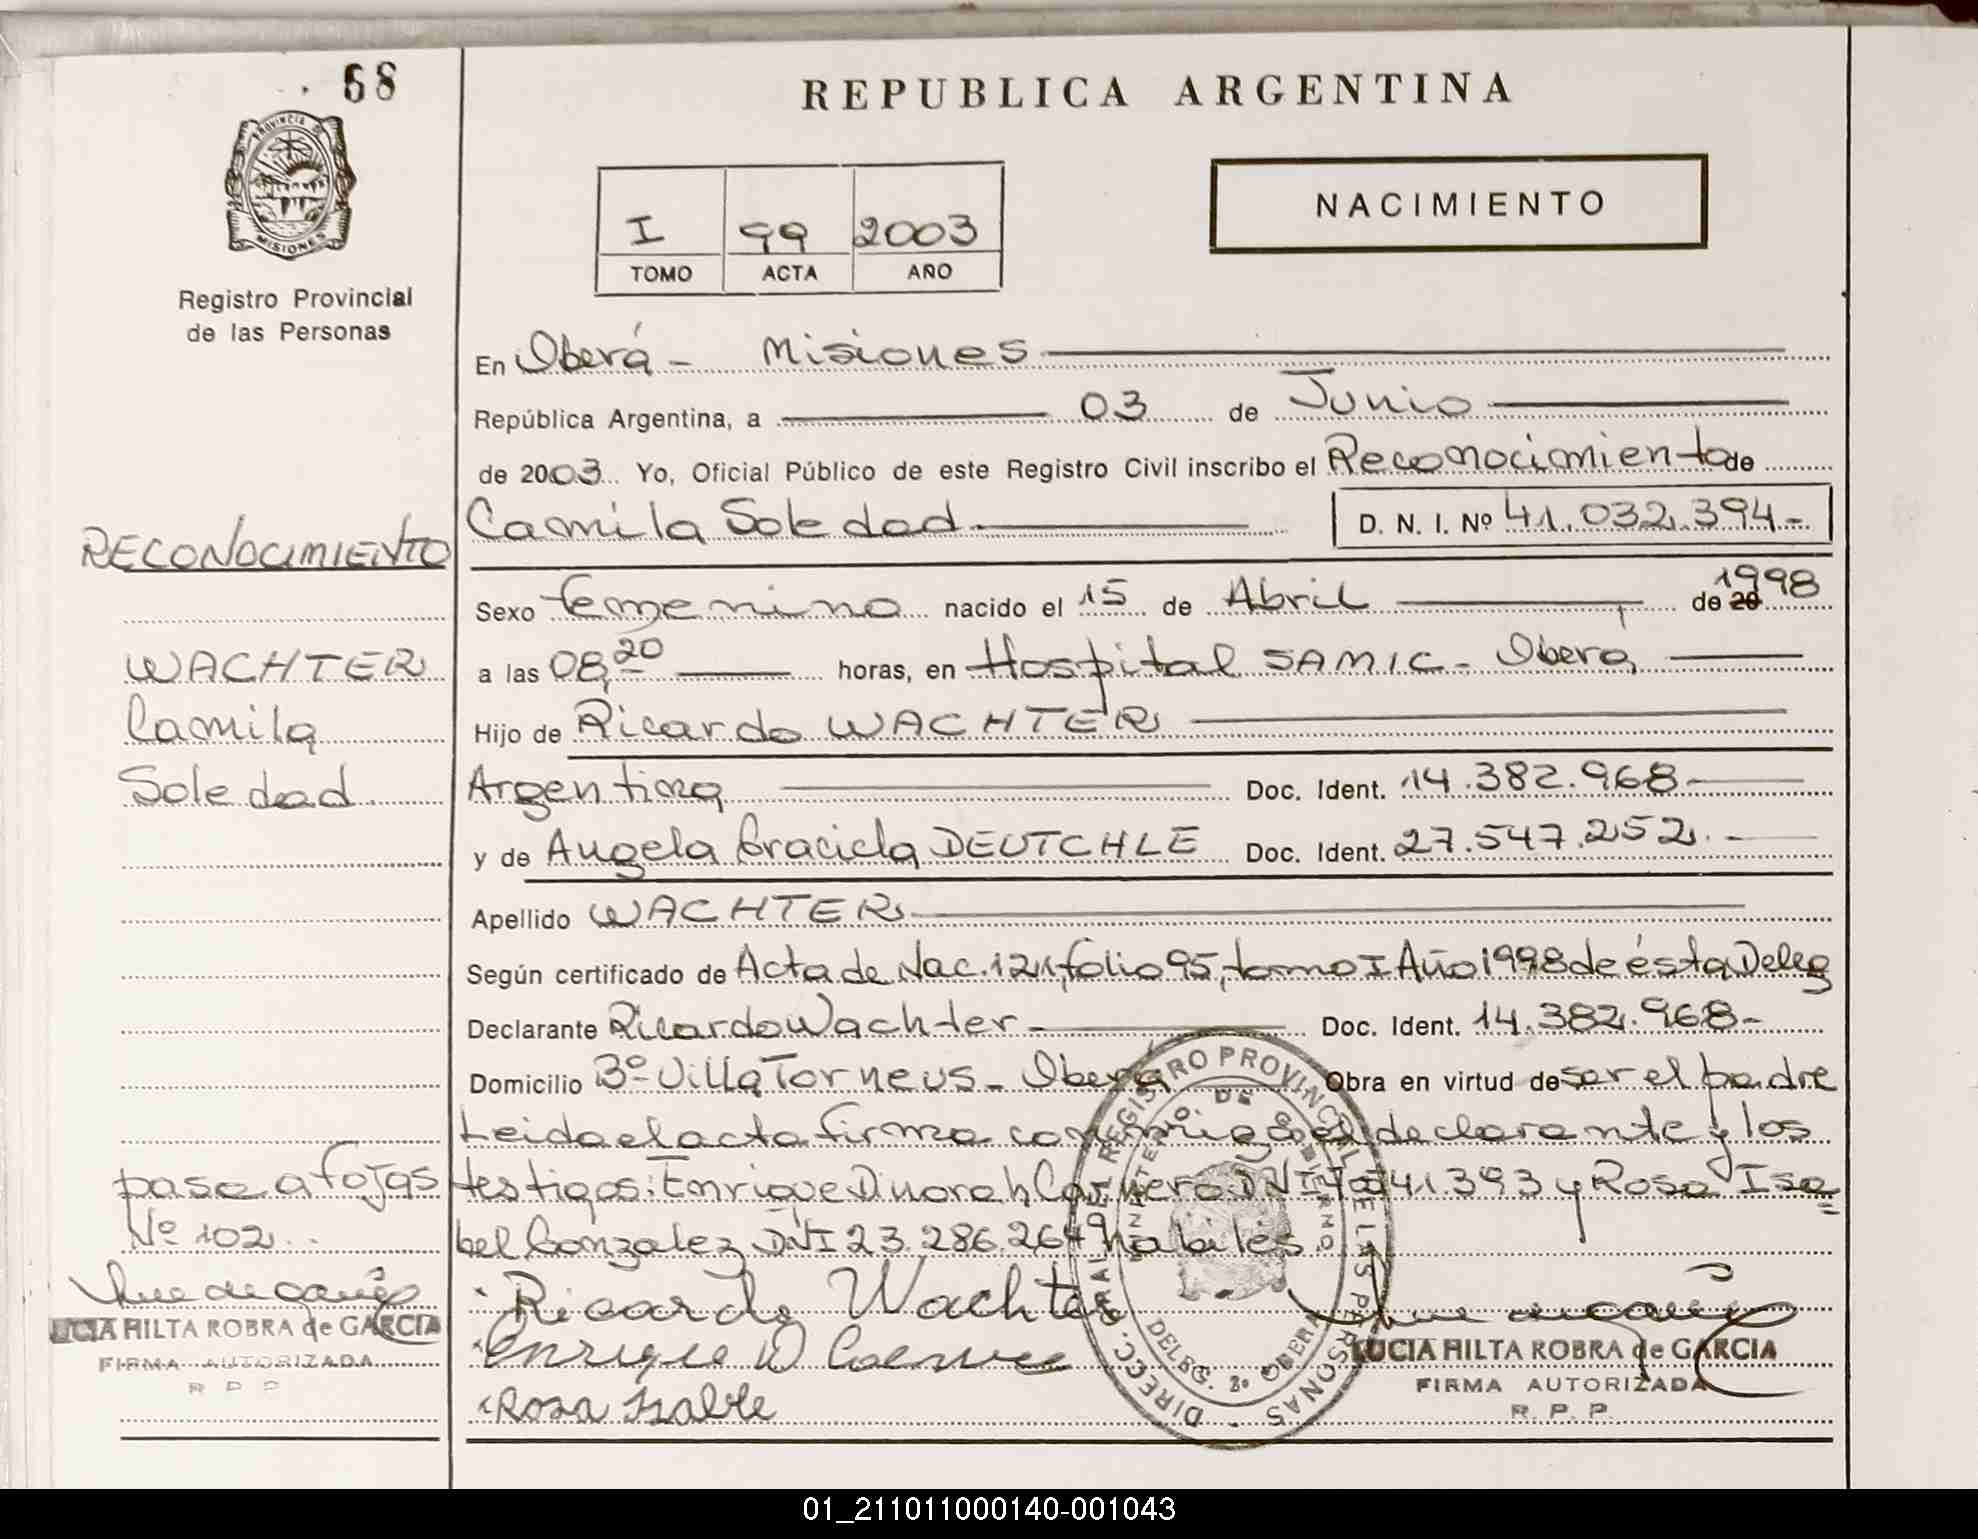 68
REPUBLICA ARGENTINA
PROVINCIA DE
MISIONES
Registro Provincial
de las Personas
I 99 2003
TOMO ACTA AÑO
NACIMIENTO
En Oberá - Misiones
República Argentina, a 03 de Junio
de 2003. Yo, Oficial Público de este Registro Civil inscribo el Reconocimiento de
Camila Soledad D. N. I. Nº 41.032.394-
RECONOCIMIENTO
Sexo femenino nacido el 15 de Abril de 20 1998
WACHTER
a las 08,20 horas, en Hospital SAMIC - Oberá
Camila
Hijo de Ricardo WACHTER
Soledad
Argentina Doc. Ident. 14.382.968-
y de Angela Graciela DEUTCHLE Doc. Ident. 27.547.252.-
Apellido WACHTER
Según certificado de Acta de Nac. 121, folio 95, tomo I Año 1998 de ésta Deleg
Declarante Ricardo Wachter - Doc. Ident. 14.382.968-
Domicilio 3º- Villa Torneus - Oberá Obra en virtud de ser el padre
Leida el acta firma conmigo el declarante y los
testigos: Enrique Dinorah DNI 41.393 y Rosa Isa
bel Gonzalez DNI 23.286.264 habiles.
pase a fojas
Nº 102
Ricardo Wachter
Enrique D
Rosa Isabel
LUCIA HILTA ROBRA de GARCIA
FIRMA AUTORIZADA
R P P
LUCIA HILTA ROBRA de GARCIA
FIRMA AUTORIZADA
R. P. P.
DIRECC. GRAL DEL REGISTRO PROVINCIAL DE LAS PERSONAS
MINISTERIO DE GOBIERNO
DELEG. 3º OBERA
01_211011000140-001043